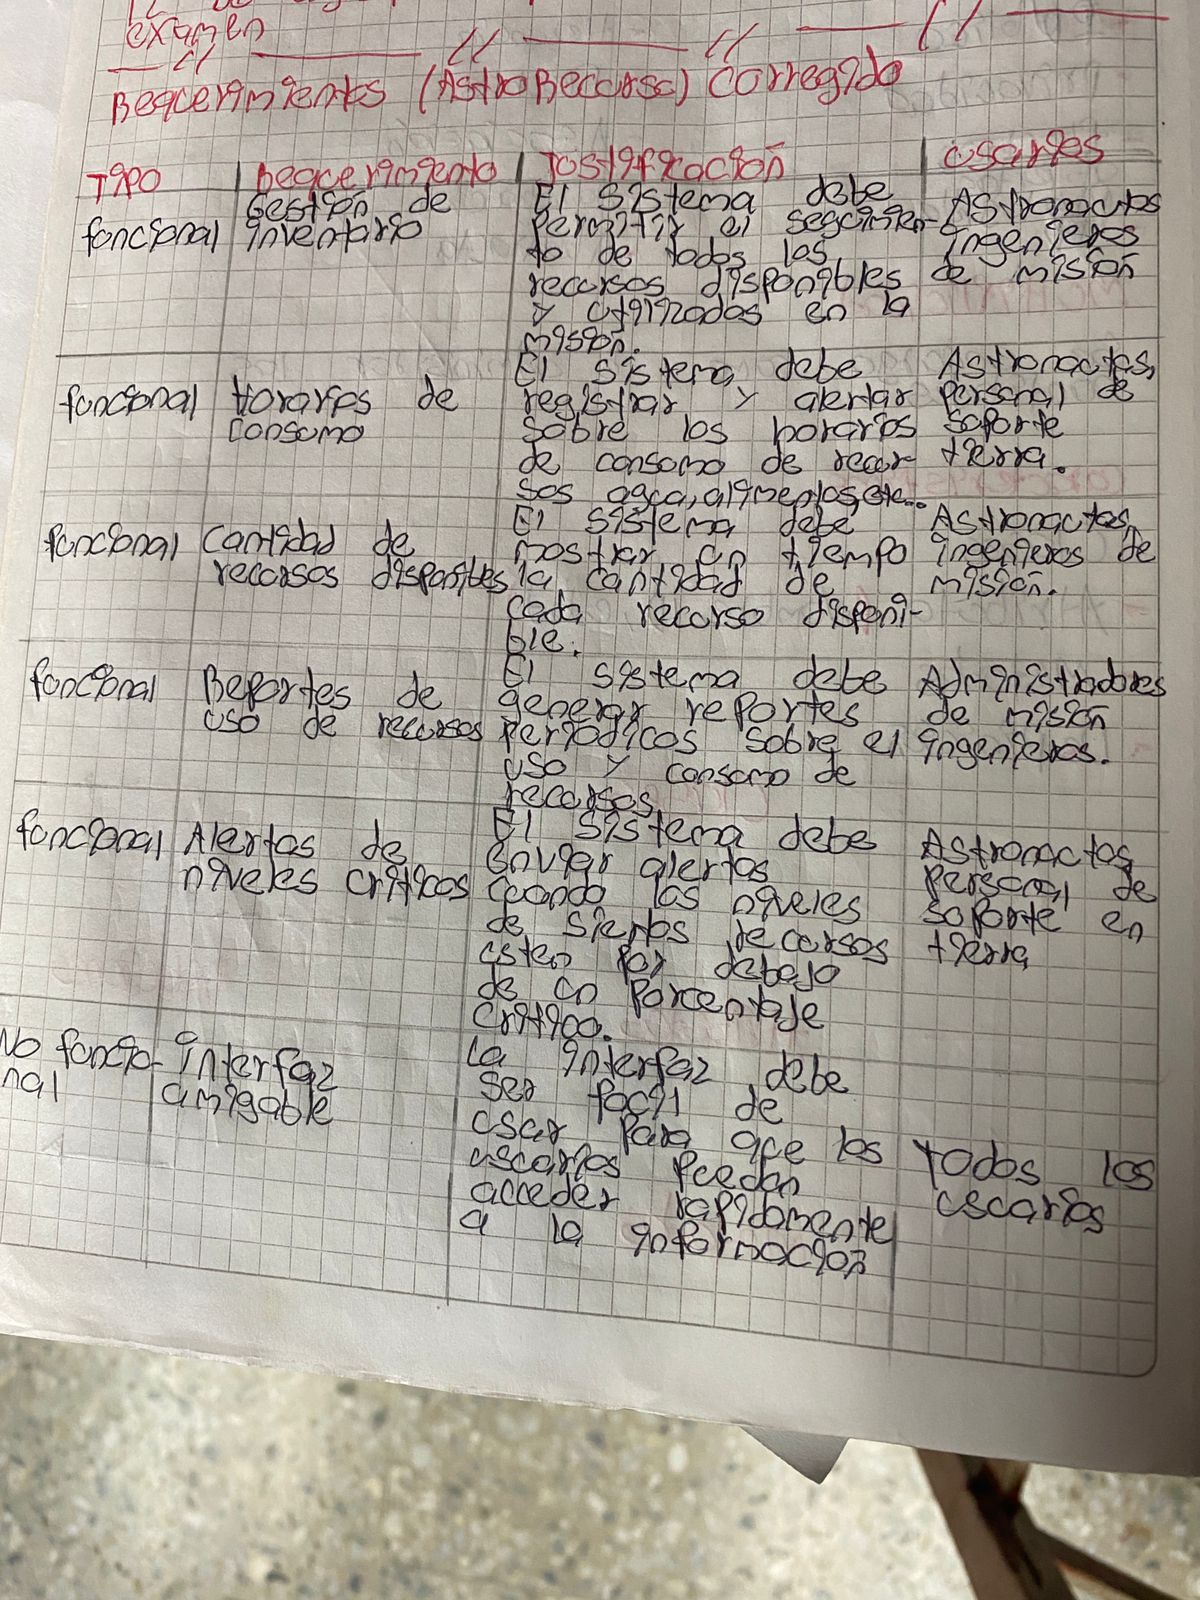 examen
Requerimientos (AstroRecurso) corregido
Tipo | Requerimiento | Justificación | usuarios
funcional
Gestión de
inventario
El sistema debe
permitir el seguimien-
to de todos los
recursos disponibles
y utilizados en la
misión.
Astronautas
ingenieros
de misión
funcional
Horarios de
consumo
El sistema debe
registrar y alertar
sobre los horarios
de consumo de recur-
sos agua, alimentos, etc..
Astronautas,
personal de
soporte
tierra.
funcional
Cantidad de
recursos disponibles
El sistema debe
mostrar en tiempo
la cantidad de
cada recurso disponi-
ble.
Astronautas,
ingenieros de
misión.
funcional
Reportes de
uso de recursos
El sistema debe
generar reportes
periodicos sobre el
uso y consumo de
recursos
Administradores
de misión
ingenieros.
funcional
Alertas de
niveles criticos
El sistema debe
enviar alertas
cuando los niveles
de siertos recursos
esten por debajo
de un porcentaje
critico.
Astronautas,
personal de
soporte en
tierra
No funcio-
nal
interfaz
amigable
la interfaz debe
ser facil de
usar para que los
usuarios puedan
acceder rapidamente
a la información
Todos los
usuarios